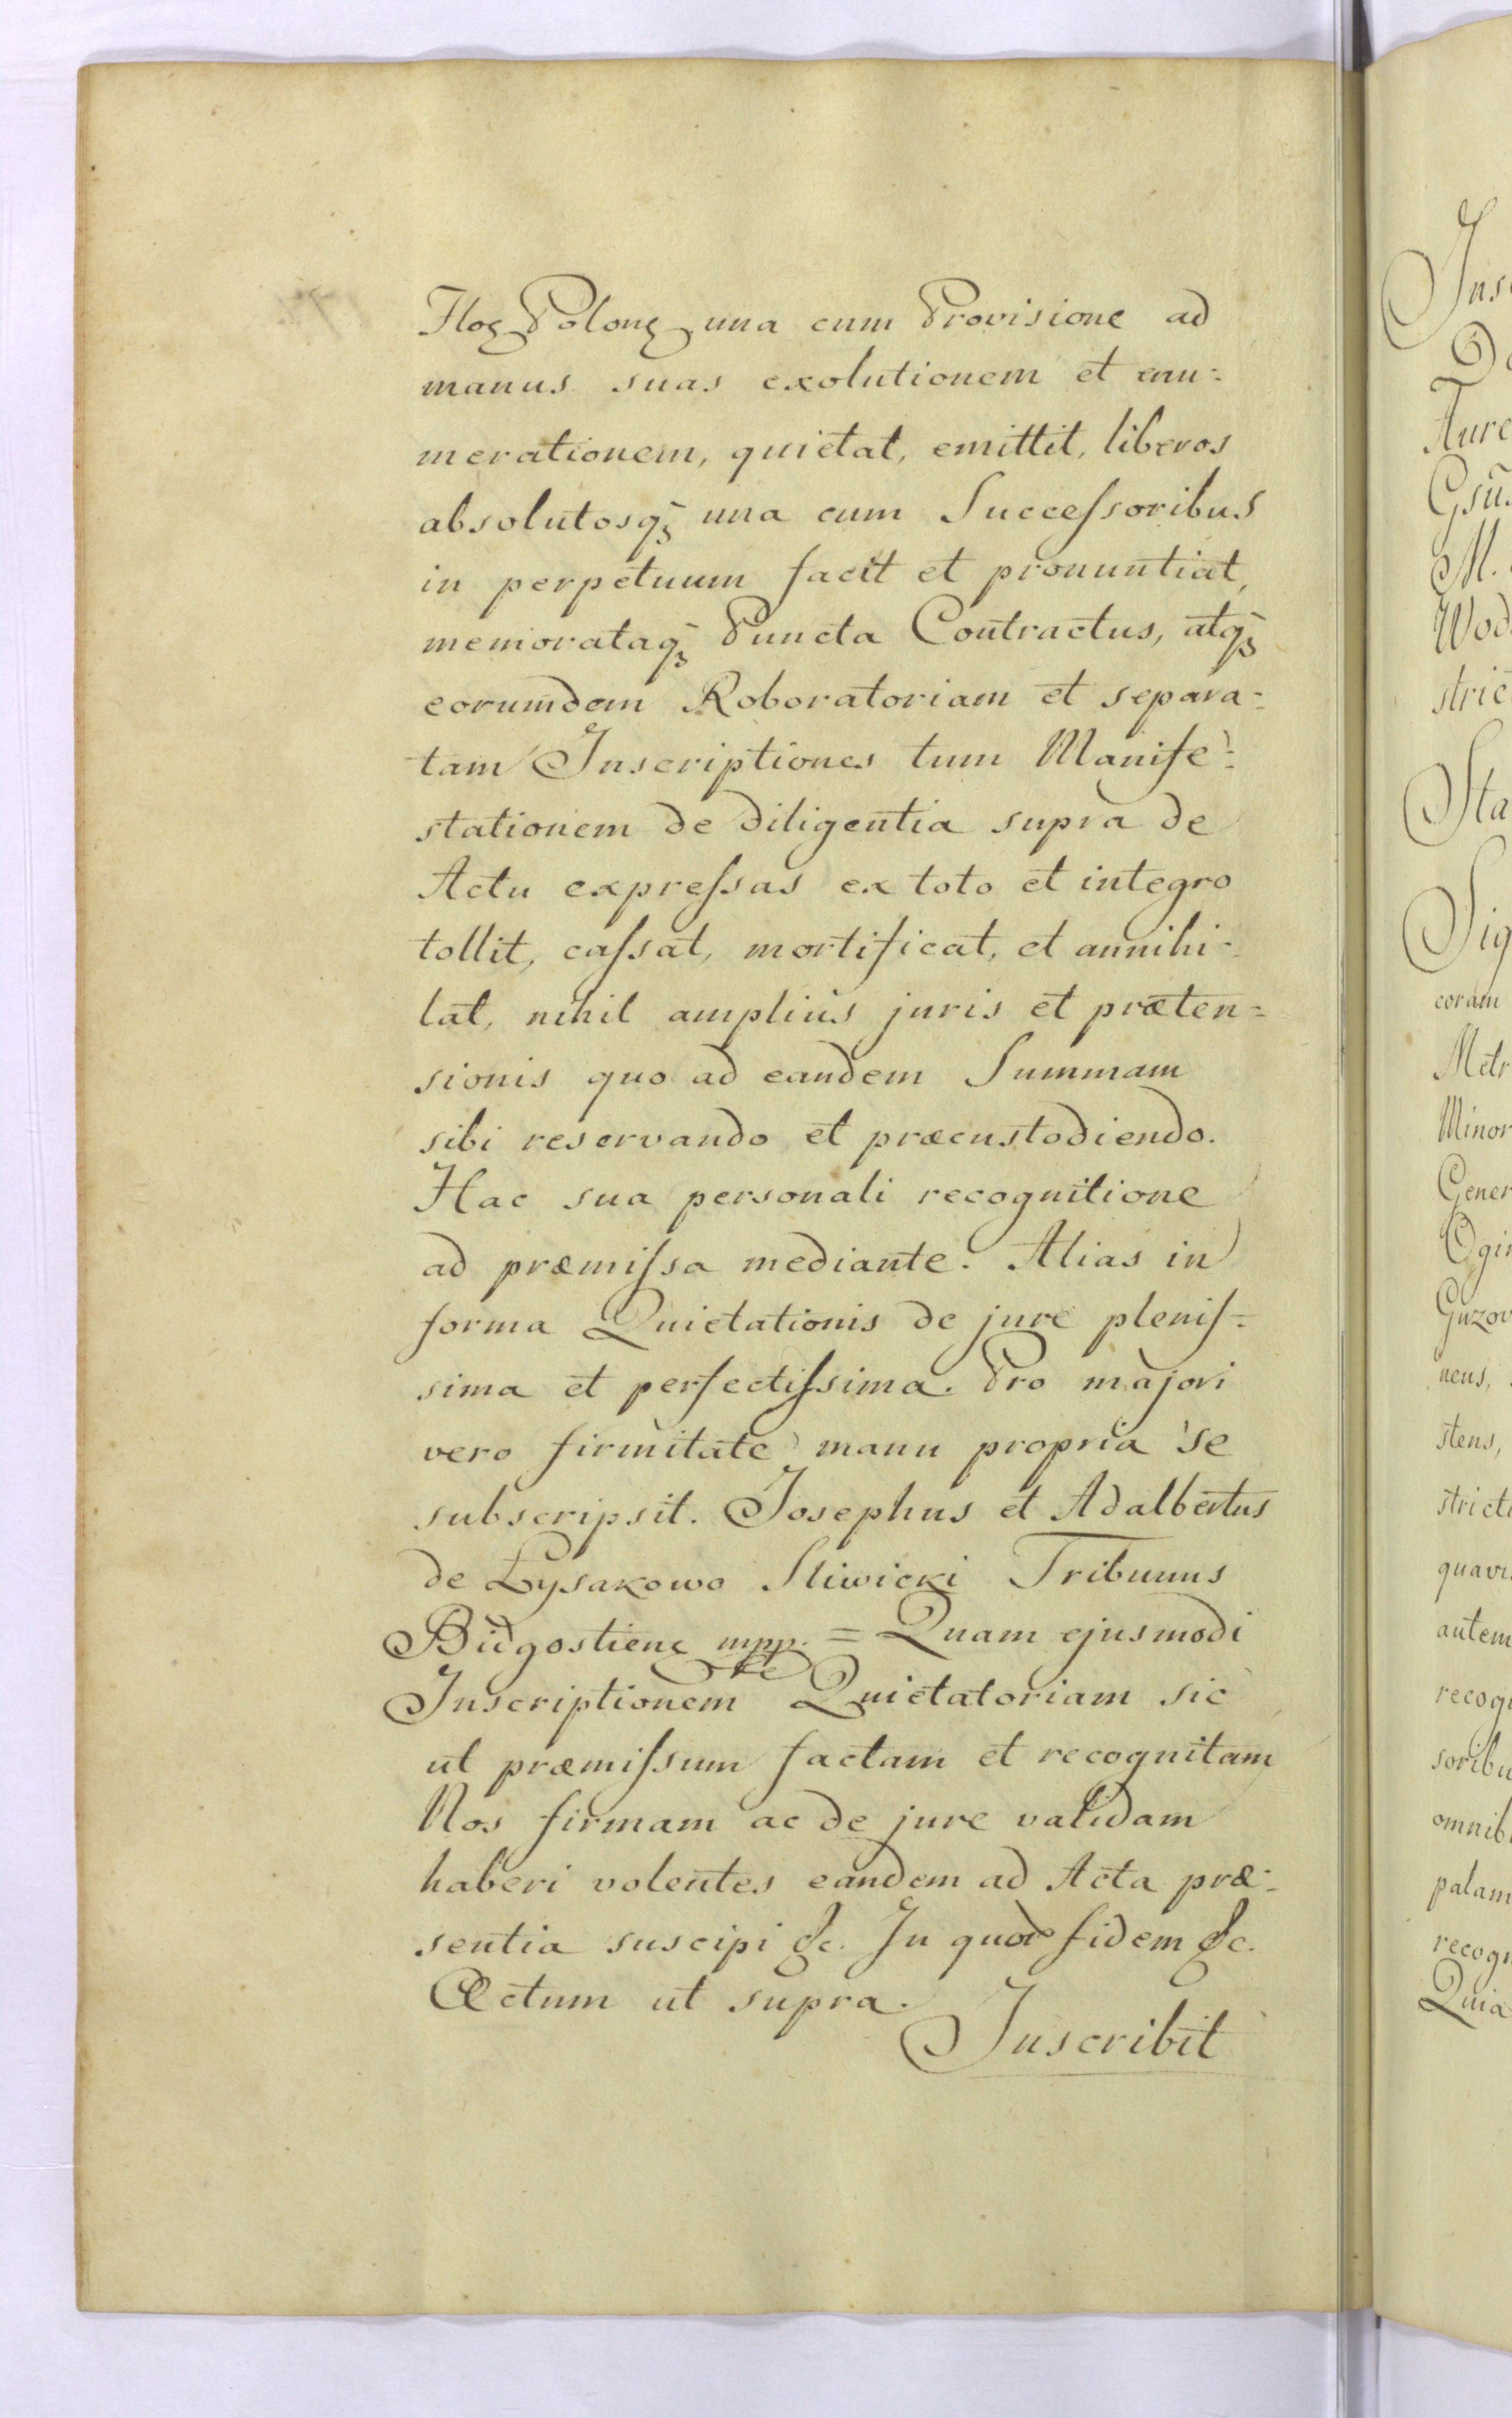 Floꝫ Polonꝫ una cum Provisione ad
manus suas exolutionem et enu-
merationem, quietat, emittit, liberos
absolutosqꝫ una cum Succeſsoribus
in perpetuum facit et pronuntiat,
memorataqꝫ Puncta Contractus, atqꝫ
eorumdem Roboratoriam et separa-
tam Inscriptiones tum Manife-
stationem de diligentia supra de
Actu expreſsas ex toto et integro
tollit, caſsat, mortificat, et annihi-
lat, nihil amplius juris et præten-
sionis quo ad eandem Summam
sibi reservando et præcustodiendo.
Hac sua personali recognitione
ad præmiſsa mediante. Alias in
forma Quietationis de jure pleniſ-
sima et perfectiſsima. Pro majori
vero firmitate manu propria se
subscripsit. Josephus et Adalbertus
de Łysakowo Sliwicki Tribunus
Bidgostienꝫ mpp. = Quam ejusmodi
Inscriptionem Quietatoriam sic
ut præmiſsum factam et recognitam
Nos firmam ac de jure validam
haberi volentes eandem ad Acta præ-
sentia suscipi &c. In quor fidem &c.
Actum ut supra.
Inscribit
Ins
Aure
M.
Wod
stric
Sta
Sig
coram
Metr
Minor
Gener
Ogin
Guzov
nens,
stens,
stricti
quavi
autem
recogn
soribu
omnib
palam
recogn
Quia